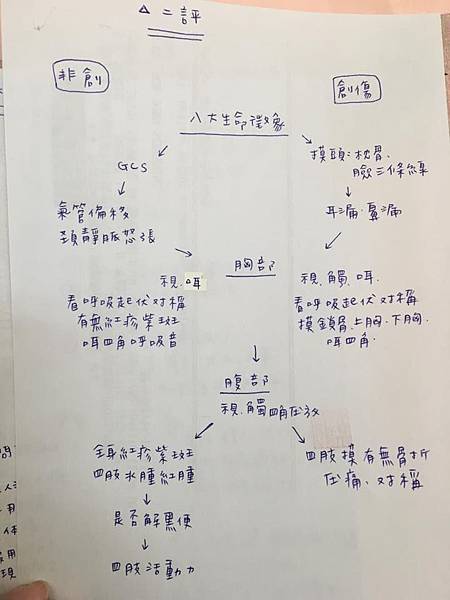 △ 二評
非創
創傷
八大生命徵象
GCS
摸頭:枕骨、
臉三條線
氣管偏移
頚靜脈怒張
耳漏、鼻漏
胸部
視、咡
看呼吸起伏对稱
有無紅疹紫斑
咡四角呼吸音
視、觸、咡.
看呼吸起伏对稱
摸鎖骨、上胸、下胸.
咡四角.
腹部
視、觸四角压放
全身紅疹紫斑
四肢水腫紅腫
四肢摸有無骨折
压痛、对稱
是否解黑便
四肢活動力